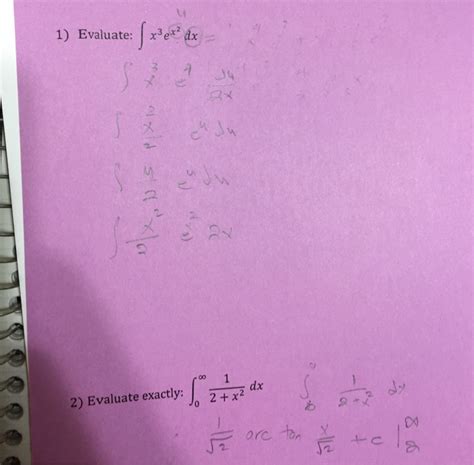 u
1) Evaluate: ∫ x³e^{x²} dx =
∫ x³ e^u du/2x
∫ x²/2 e^u du
∫ u/2 e^u du
∫ x²/2 e^{x²} 2x
2) Evaluate exactly: ∫₀^∞ 1/(2 + x²) dx
1/√2 arc tan x/√2 + c |